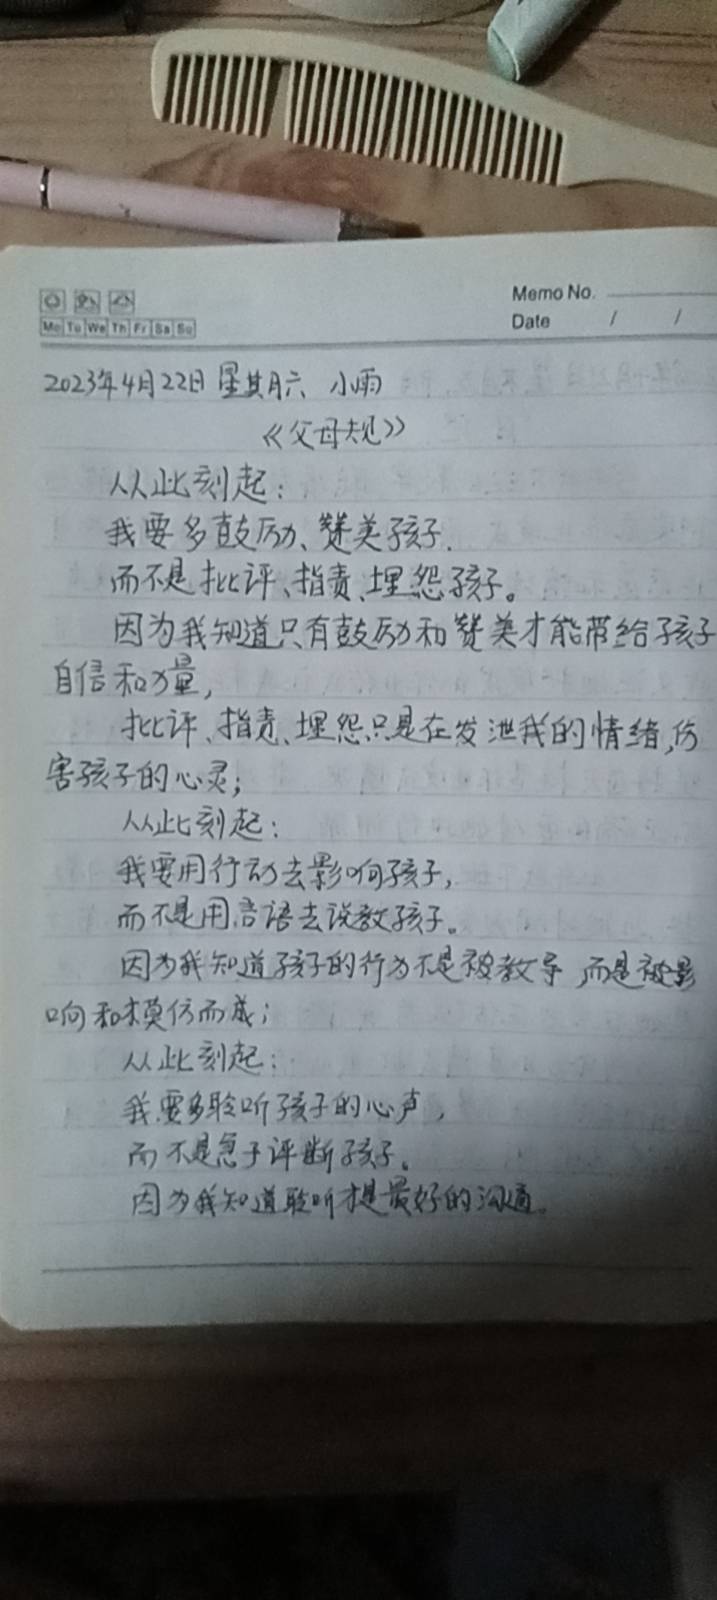 Memo No.
Mo Tu We Th Fr Sa Su
Date / /
2023年4月22日 星期六 小雨
《父母规》
从此刻起:
我要多鼓励、赞美孩子.
而不是批评、指责、埋怨孩子。
因为我知道只有鼓励和赞美才能带给孩子
自信和力量,
批评、指责、埋怨只是在发泄我的情绪,伤
害孩子的心灵;
从此刻起:
我要用行动去影响孩子,
而不是用言语去说教孩子。
因为我知道孩子的行为不是被教导,而是被影
响和模仿而成;
从此刻起:
我要多聆听孩子的心声,
而不是急于评断孩子。
因为我知道聆听才是最好的沟通。